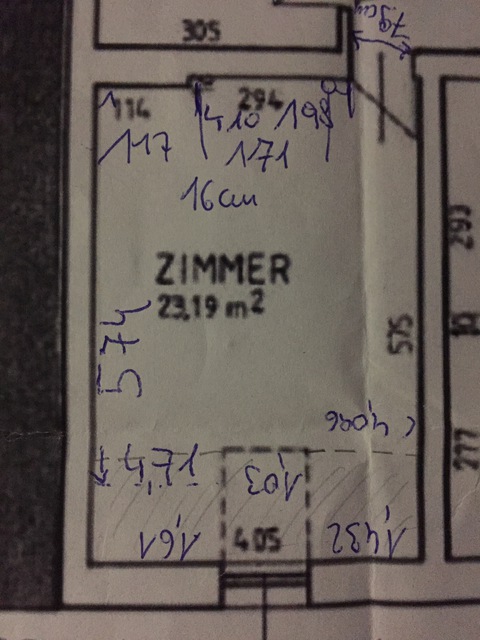 305
79cm
114
294
410 198
117
171
16cm
ZIMMER
23,19 m²
293
575
574
4,096
277
1,03
1,61
405
1,432